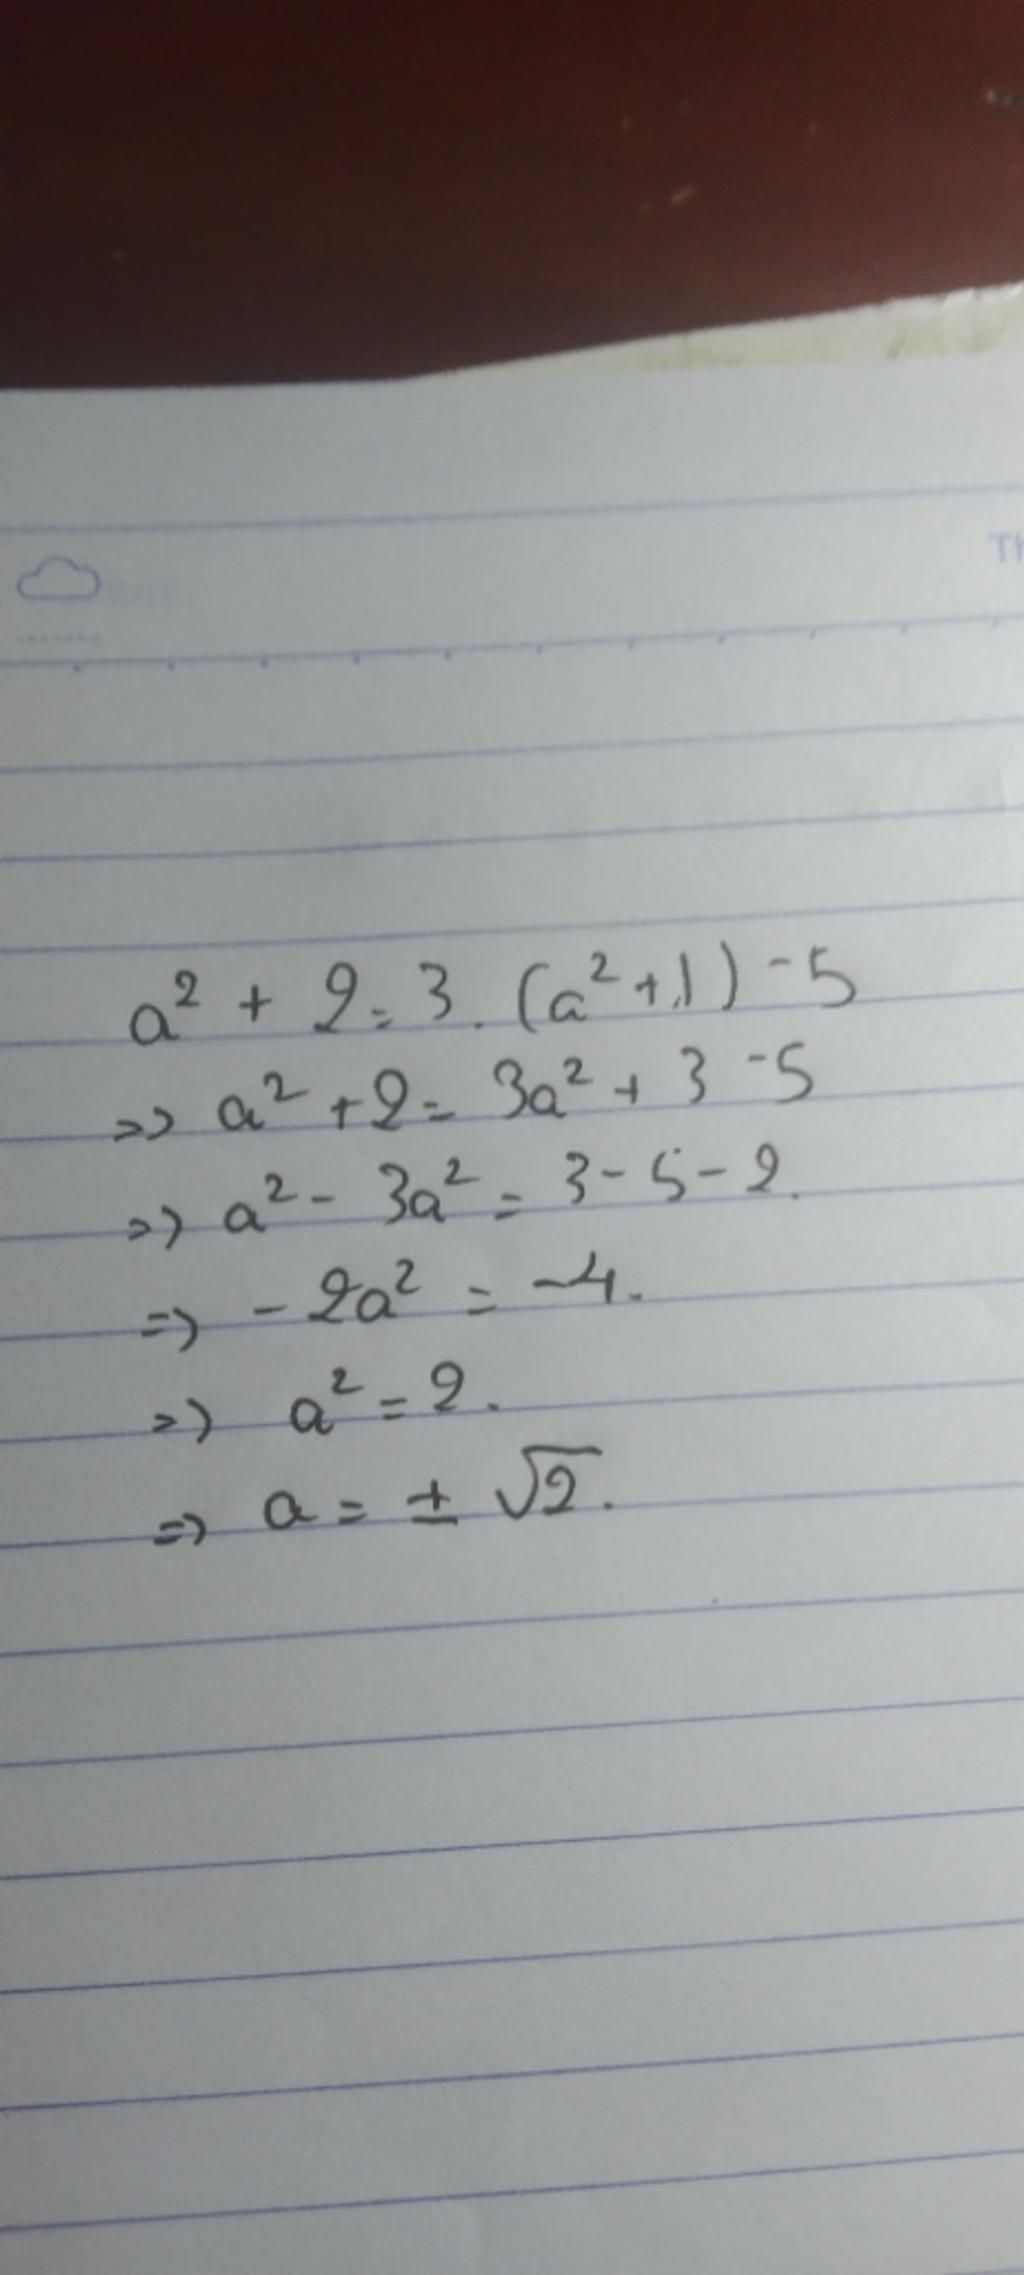 Th
a² + 2 = 3. (a² + 1) - 5
=> a² + 2 = 3a² + 3 - 5
=> a² - 3a² = 3 - 5 - 2.
=> - 2a² = -4.
=> a² = 2.
=> a = ± √2.